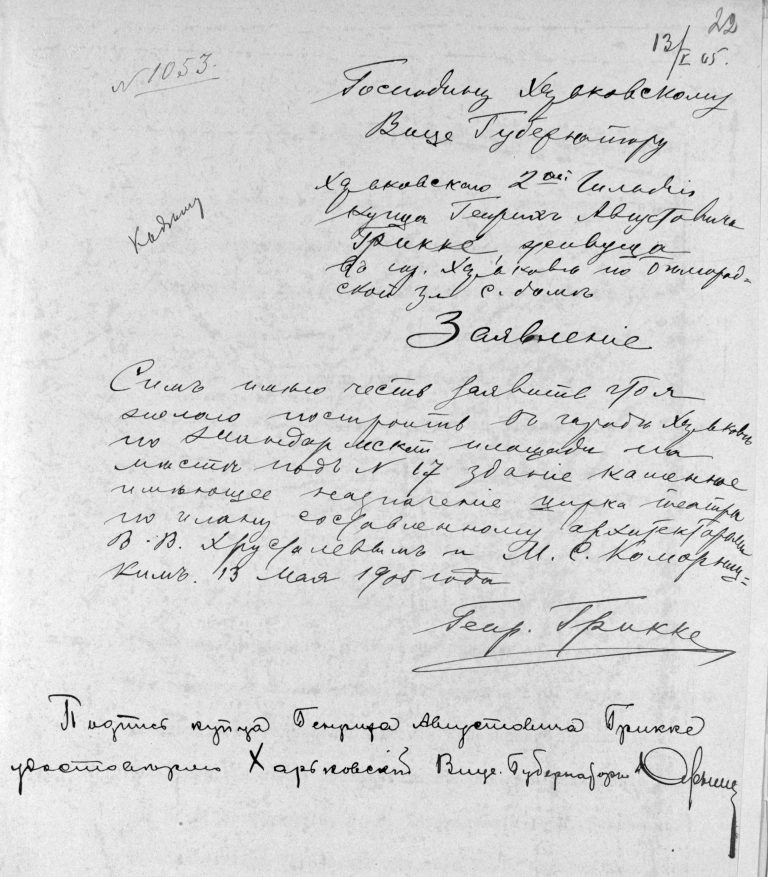 22
13/V 05.
N. 1053.
Господину Харьковскому
Вице Губернатору
Харьковского 2ой Гильдіи
Купца Генриха Августовича
Грикке живуща
въ гор. Харьковѣ по
ской ул с. домъ
Заявленіе
Симъ имѣю честь заявить что я
желаю построить въ городѣ Харьковѣ
по Жандармской площади на
мѣстѣ подъ N 17 зданіе каменное
имѣющее назначение цирка театра
по плану составленному архитекторами
В. В. Хрусталевымъ и М. С. Коморниц=
кимъ. 13 Мая 1905 года
Генр. Грикке
Подпись купца Генриха Августовича Грикке
удостовѣряю Харьковскій Вице-Губернаторъ